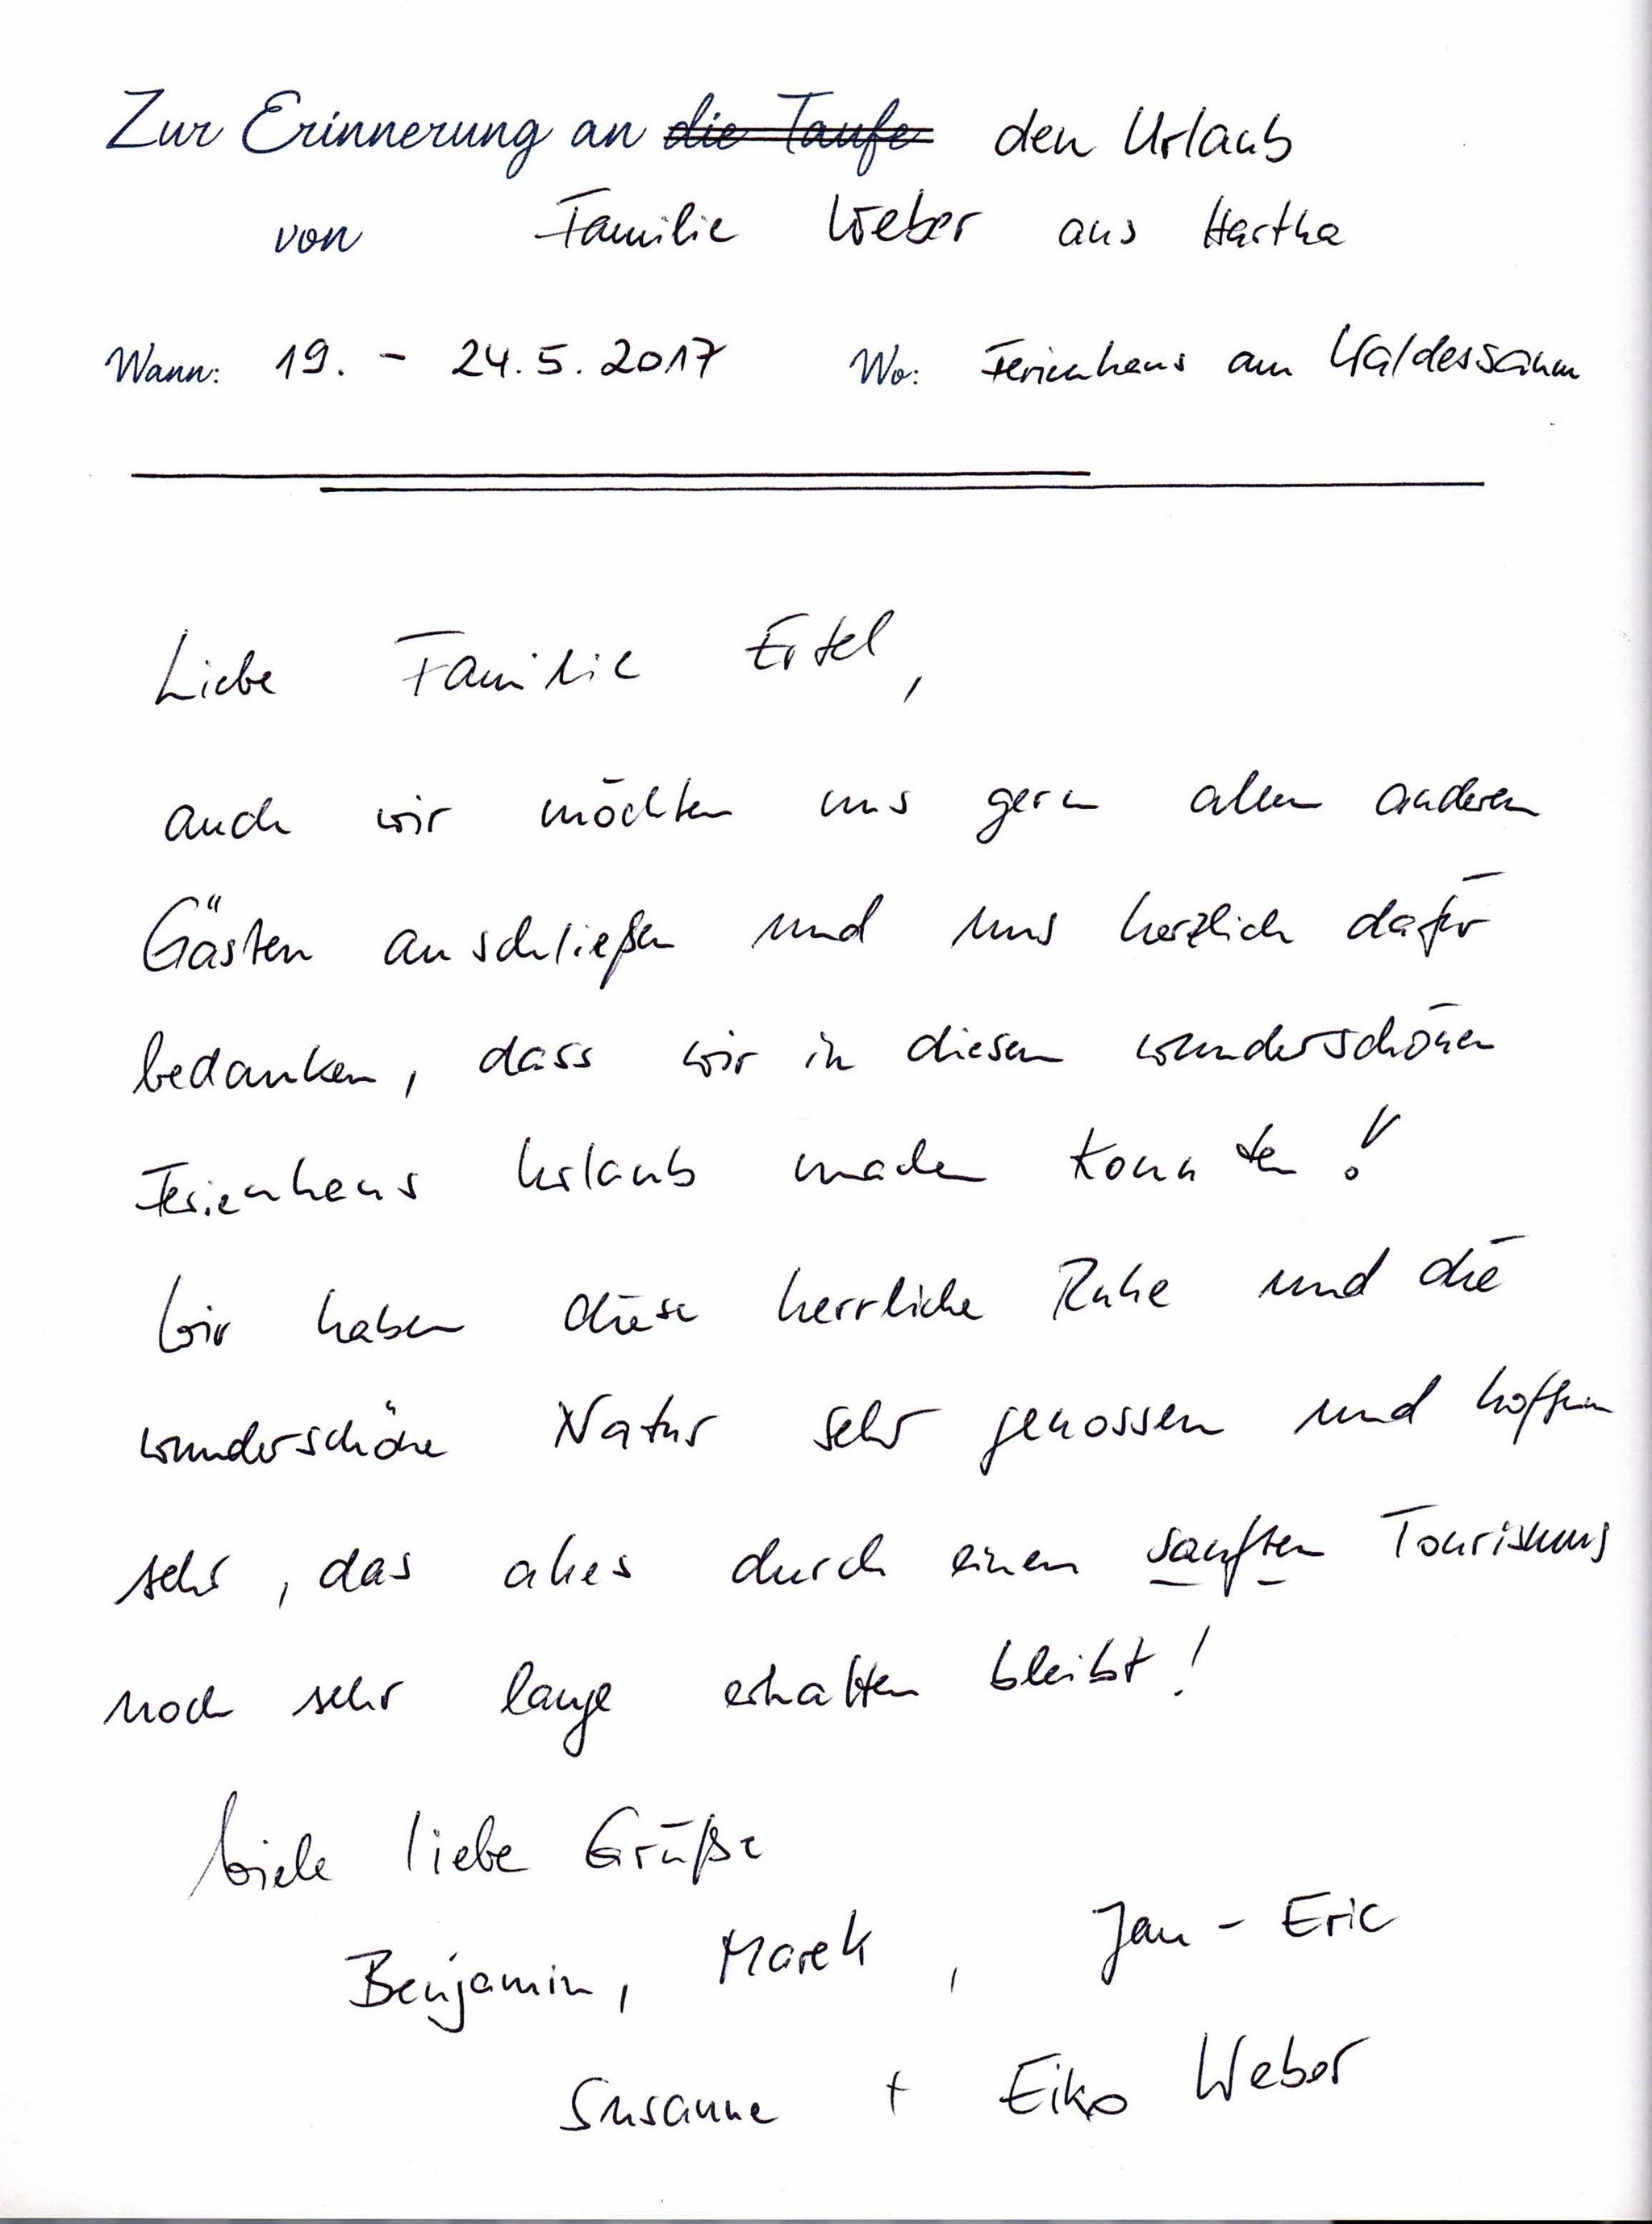 Zur Erinnerung an die Taufe den Urlaub
von Familie Weber aus Hartha
Wann: 19. - 24.5.2017 Wo: Ferienhaus am Waldessaum
Liebe Familie Ertel,
auch wir möchten uns gern allen anderen
Gästen anschließen und uns herzlich dafür
bedanken, dass wir in diesem wunderschönen
Ferienhaus Urlaub machen konnten!
Wir haben diese herrliche Ruhe und die
wunderschöne Natur sehr genossen und hoffen
sehr, das alles durch einen sanften Tourismus
noch sehr lange erhalten bleibt!
Viele liebe Grüße
Benjamin, Marek, Jan-Eric
Susanne + Eiko Weber